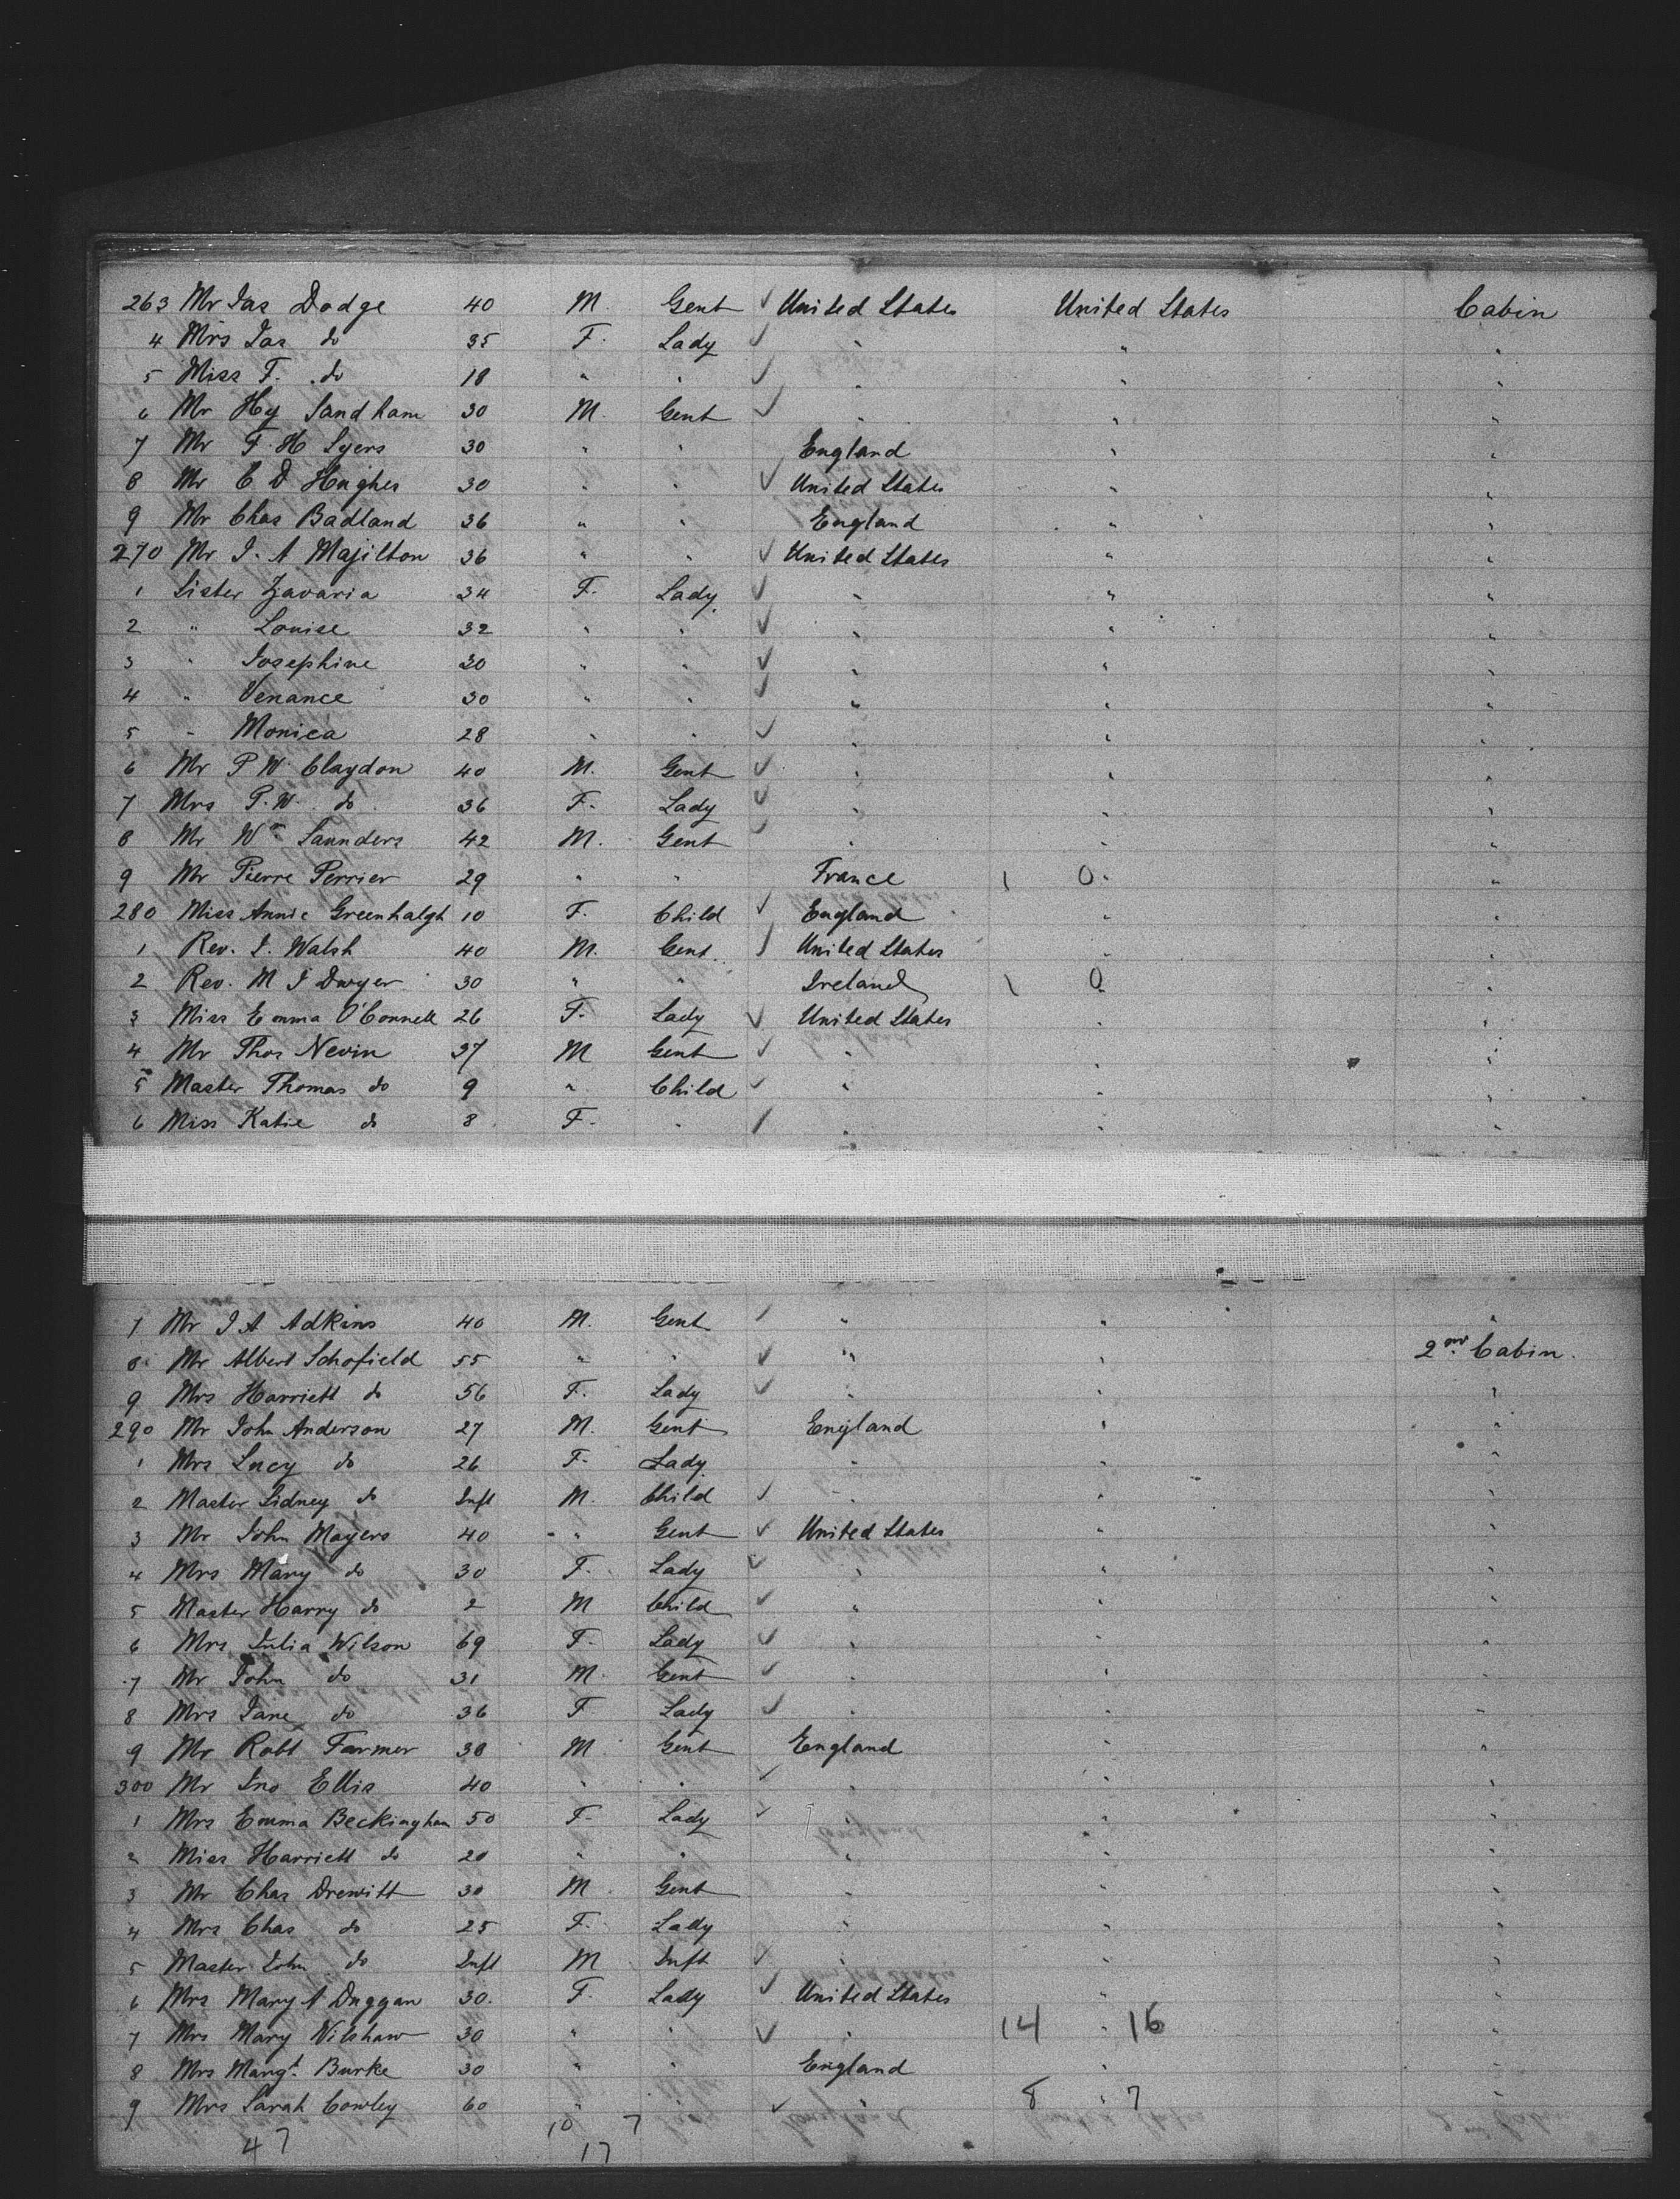 263 Mr Jas Dodge 40 M. Gent ✓ United States United States Cabin
4 Mrs Jas do 35 F. Lady ✓ " " "
5 Miss F. do 18 " " ✓ " " "
6 Mr Hy Sandham 30 M. Gent ✓ " " "
7 Mr F. H Syers 30 " " England " "
8 Mr C D Hughes 30 " " ✓ United States " "
9 Mr Chas Badland 36 " " England " "
270 Mr J. A Majilton 36 " " ✓ United States " "
1 Sister Zavaria 34 F. Lady ✓ " " "
2 " Louise 32 " " ✓ " " "
3 " Josephine 30 " " ✓ " " "
4 " Venance 30 " " ✓ " " "
5 " Monica 28 " " ✓ " " "
6 Mr P W Claydon 40 M. Gent ✓ " " "
7 Mrs P. W. do 36 F. Lady ✓ " " "
8 Mr Wm Saunders 42 M. Gent ✓ " " "
9 Mr Pierre Perrier 29 " " France 1 0 " "
280 Miss Annie Greenhalgh 10 F. Child ✓ England " "
1 Rev. J. Walsh 40 M. Gent. ✓ United States " "
2 Rev. M J Dwyer 30 " " Ireland 1 0 " "
3 Miss Emma O'Connell 26 F. Lady ✓ United States " "
4 Mr Thos Nevin 37 M Gent ✓ " " "
5 Master Thomas do 9 " Child ✓ " " "
6 Miss Katie do 8 F. " ✓ " " "
7 Mr J A Adkins 40 M. Gent ✓ " " "
8 Mr Albert Schofield 55 " " ✓ " " 2nd Cabin.
9 Mrs Harriett do 56 F. Lady ✓ " " "
290 Mr John Anderson 27 M. Gent England " "
1 Mrs Lucy do 26 F. Lady " " "
2 Master Sidney do Inft M. Child ✓ " " "
3 Mr John Mayers 40 " Gent ✓ United States " "
4 Mrs Mary do 30 F. Lady ✓ " " "
5 Master Harry do 2 M Child ✓ " " "
6 Mrs Julia Wilson 69 F. Lady ✓ " " "
7 Mr John do 31 M. Gent ✓ " " "
8 Mrs Jane do 36 F Lady ✓ " " "
9 Mr Robt Farmer 38 M. Gent England " "
300 Mr Jno Ellis 40 " " ✓ " " "
1 Mrs Emma Beckingham 50 F. Lady ✓ " " "
2 Miss Harriett do 20 " " " " "
3 Mr Chas Drewitt 30 M. Gent " " "
4 Mrs Chas do 25 F. Lady " " "
5 Master John do Inft M Inft ✓ " " "
6 Mrs Mary A Duggan 30. F. Lady ✓ United States " "
7 Mrs Mary Wilshaw 30 " " ✓ " 14 " 16 "
8 Mrs Margt. Burke 30 " " England " "
9 Mrs Sarah Cowley 60 " " ✓ " 8 " 7 "
10 7
47 17